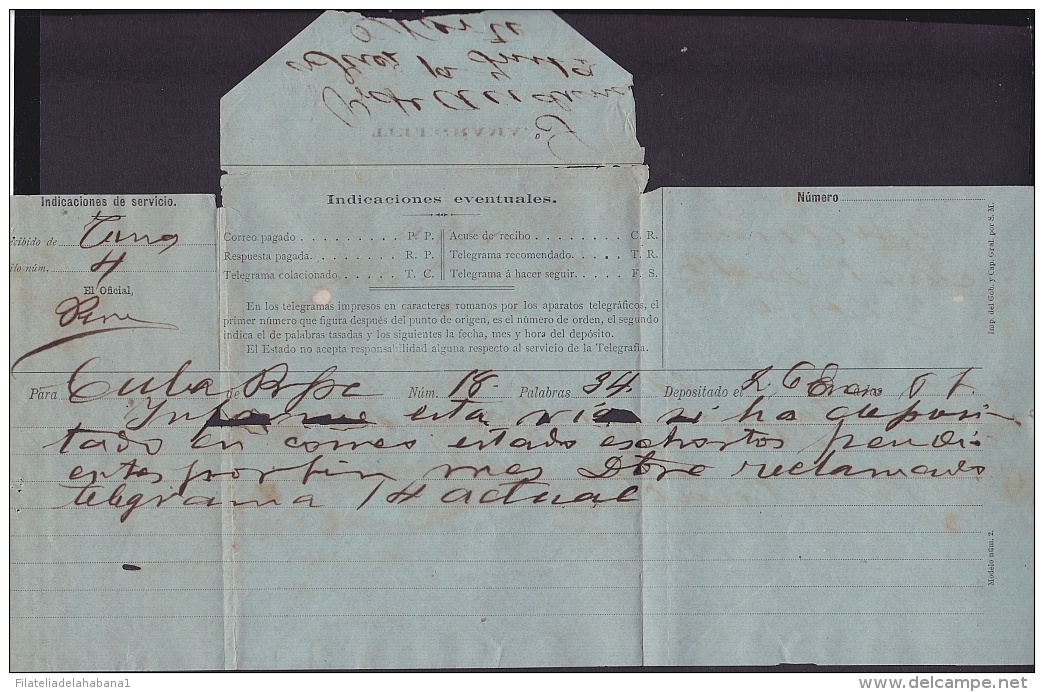 TELEGRAMA.
Indicaciones de servicio.
Recibido de
Hilo núm. 4
El Oficial,
Indicaciones eventuales.
Correo pagado . . . . . . . . P. P.
Respuesta pagada. . . . . . . R. P.
Telegrama colacionado . . . . T. C.
Acuse de recibo . . . . . . . C. R.
Telegrama recomendado. . . . . T. R.
Telegrama á hacer seguir. . . . F. S.
En los telegramas impresos en caracteres romanos por los aparatos telegráficos, el
primer número que figura después del punto de origen, es el número de orden, el segundo
indica el de palabras tasadas y los siguientes la fecha, mes y hora del depósito.
El Estado no acepta responsabilidad alguna respecto al servicio de la Telegrafía.
Número
Imp. del Gob. y Cap. Gral. por S. M.
Para Cuba de Núm. 18 Palabras 34 Depositado el 26 Enero
Informe esta via si ha deposi
tado en correo estado exhortos pendi
entes por fin mes Dbre reclamados
telegrama 14 actual
Modelo núm. 2.
Filateliadelahabana1
www.delcampe.net